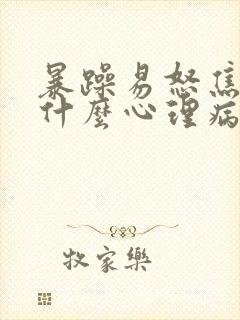 暴躁易怒焦
什麼心理病
牧家樂